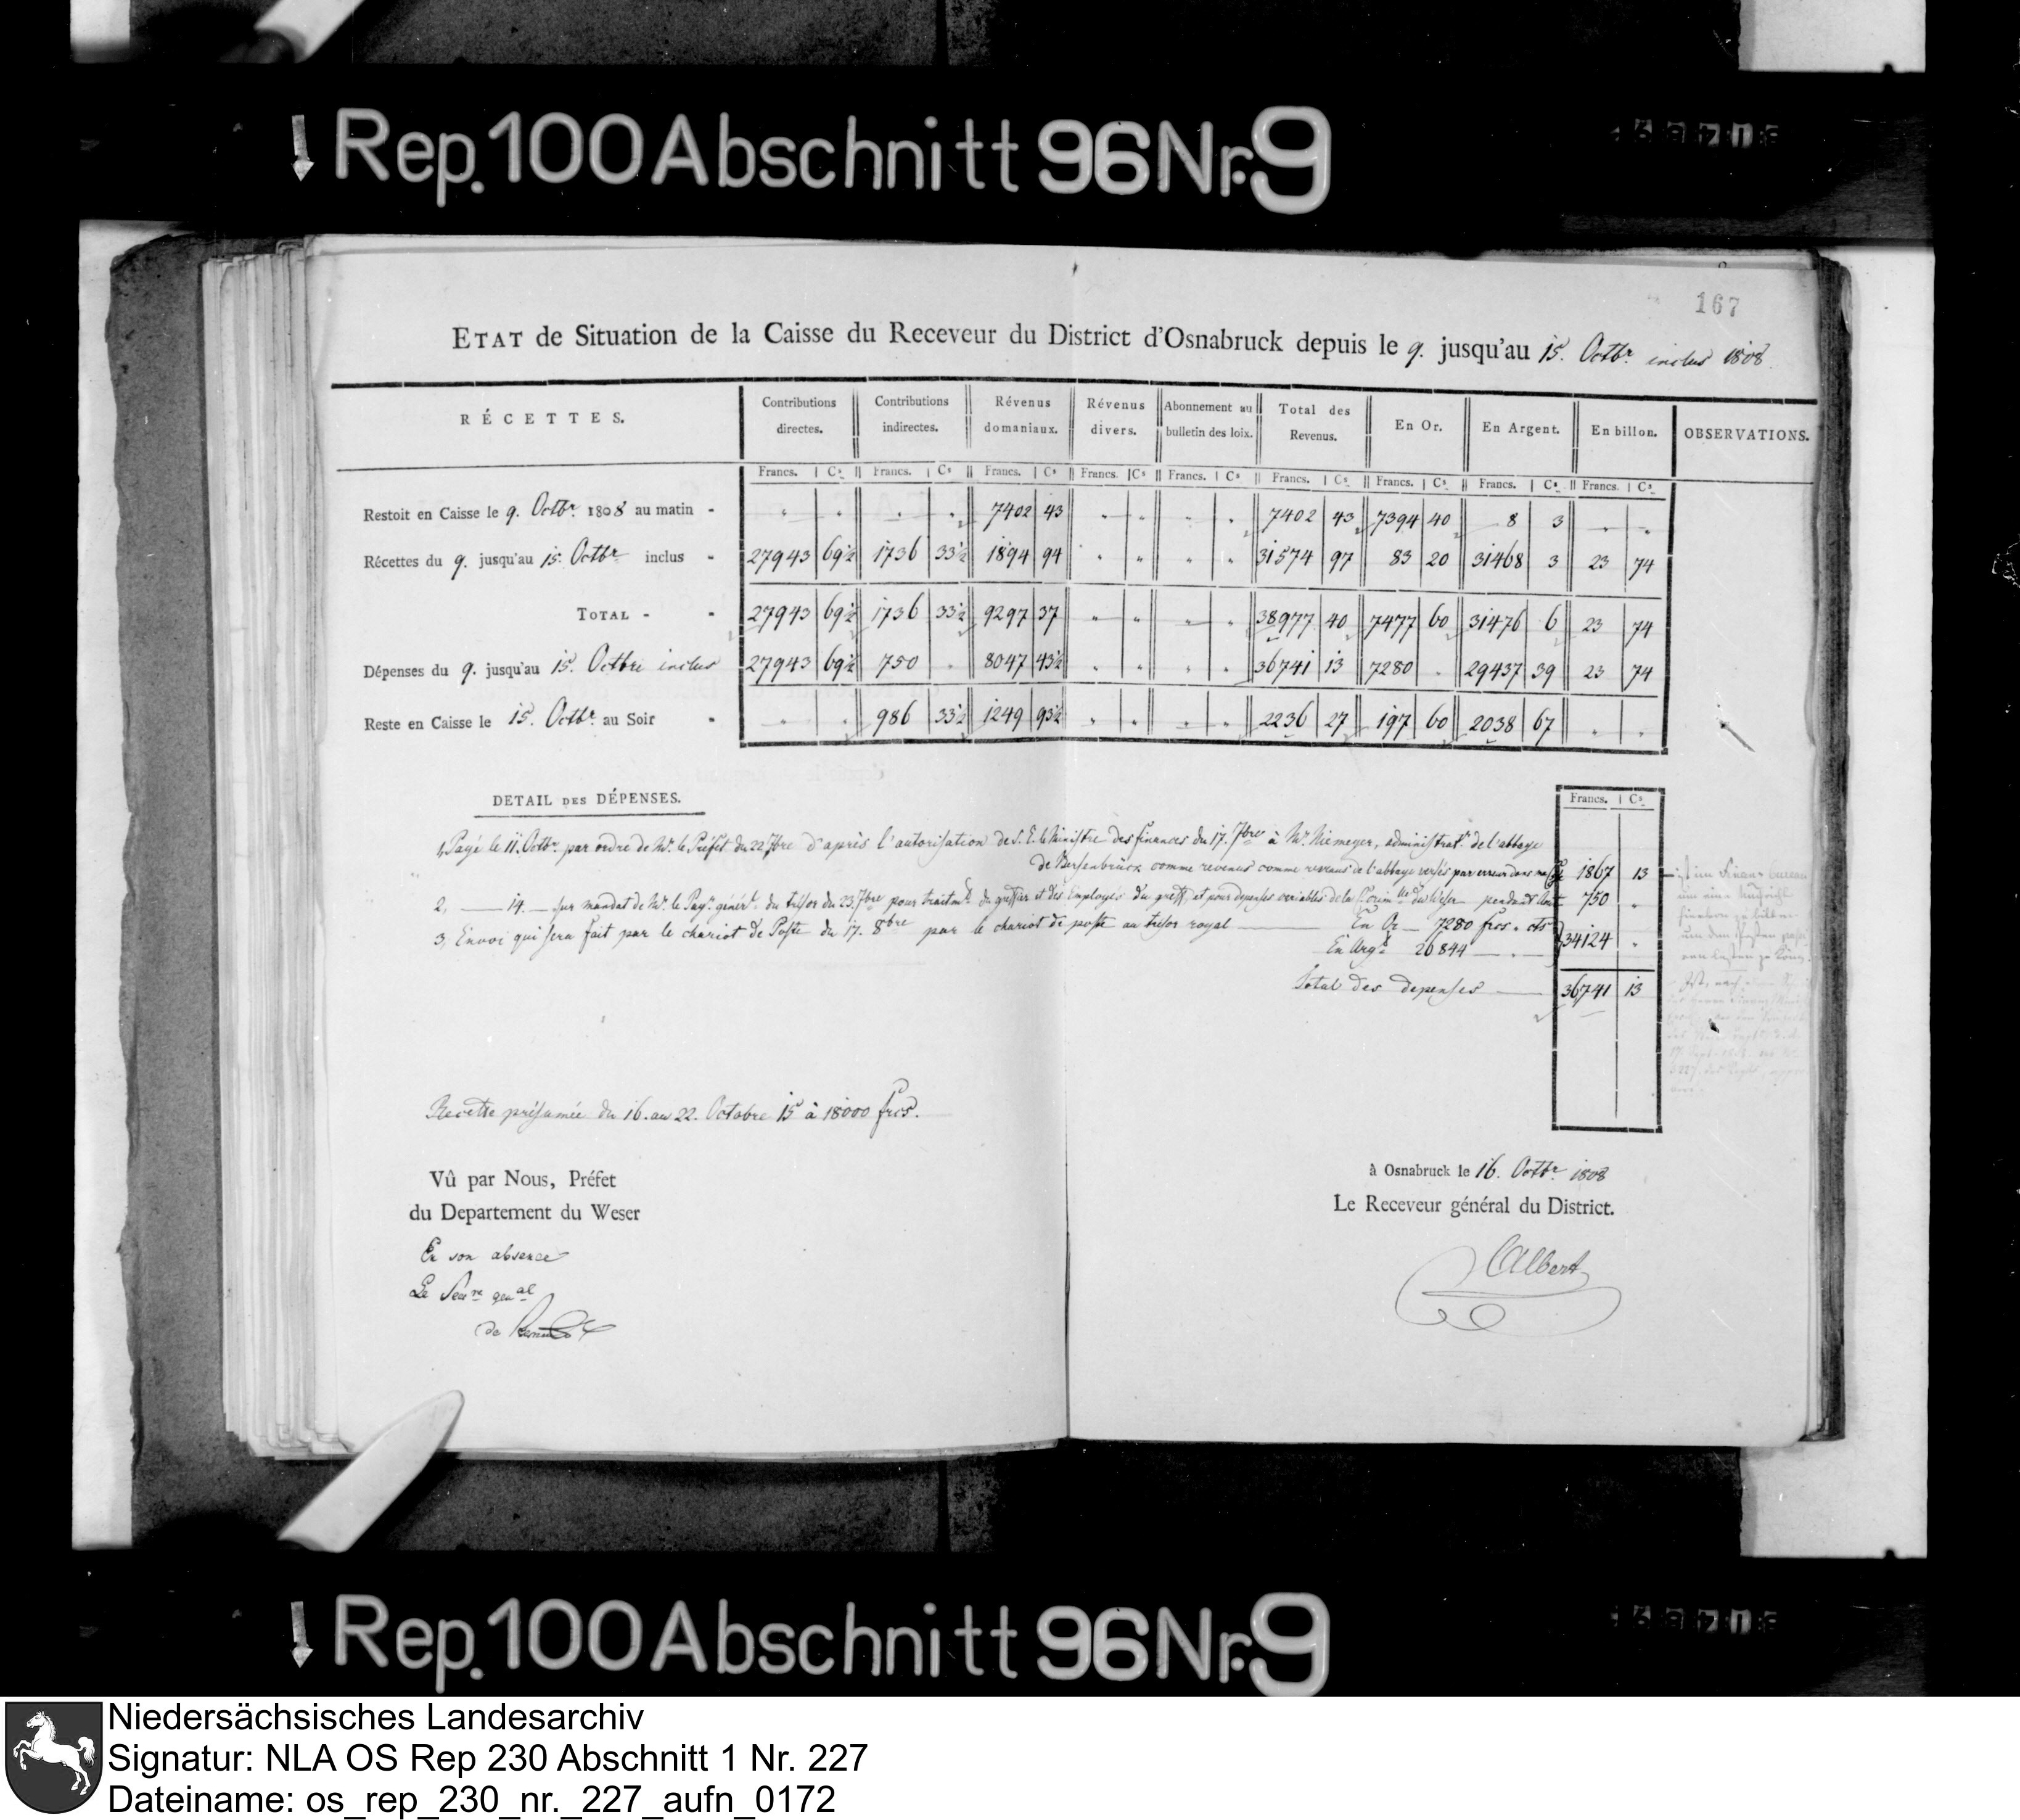 Rep. 100 Abschnitt 96 Nr. 9
167
ETAT de Situation de la Caisse du Receveur du District d'Osnabruck depuis le 9. jusqu'au 15. Octbr. inclus 1808.
RÉCETTES. Contributions directes. Contributions indirectes. Révenus domaniaux. Révenus divers. Abonnement au bulletin des loix. Total des Revenus. En Or. En Argent. En billon. OBSERVATIONS.
Francs. Cs Francs. Cs Francs. Cs Francs. Cs Francs. Cs Francs. Cs Francs. Cs Francs. Cs Francs. Cs
Restoit en Caisse le 9. Octbr. 1808 au matin - " " " " 7402 43 " " " " 7402 43 7394 40 8 3 " "
Récettes du 9. jusqu'au 15. Octbr inclus - 27943 69½ 1736 33½ 1894 94 " " " " 31574 97 83 20 31468 3 23 74
TOTAL - - 27943 69½ 1736 33½ 9297 37 " " " " 38977 40 7477 60 31476 6 23 74
Dépenses du 9. jusqu'au 15. Octbre inclus 27943 69½ 750 " 8047 43½ " " " " 36741 13 7280 " 29437 39 23 74
Reste en Caisse le 15. Octbr. au Soir - " " 986 33½ 1249 93½ " " " " 2236 27 197 60 2038 67 " "
DETAIL DES DÉPENSES.
Francs. Cs
1, Payé le 11. Octbr. par ordre de Mr. le Préfet du 22 7bre d'après l'autorisation de S. E. le Ministre des finances du 17. 7bre à Mr. Niemeyer, administratr. de l'abbaye
de Bersenbrück comme revenus comme revenus de l'abbaye versés par erreur dans ma 1867 13
2, — 14. — sur mandat de Mr. le Payr. générl. du trésor du 23. 7bre pour traitmt. du greffier et des Employés du greffe, et pour depenses variables de la pendant 750 "
3, Envoi qui sera fait par le chariot de Poste du 17. 8bre par le chariot de poste au trésor royal — En Or — 7280 frcs. " cts
En Argt. 26844 — " — 34124 "
Total des depenses — 36741 13
Recette présumée du 16. au 22. Octobre 15 à 18000 frcs.
Vû par Nous, Préfet
du Departement du Weser
En son absence
Le Secre genal
de
à Osnabruck le 16. Octbr. 1808
Le Receveur général du District.
Albert
Rep. 100 Abschnitt 96 Nr. 9
Niedersächsisches Landesarchiv
Signatur: NLA OS Rep 230 Abschnitt 1 Nr. 227
Dateiname: os_rep_230_nr._227_aufn_0172